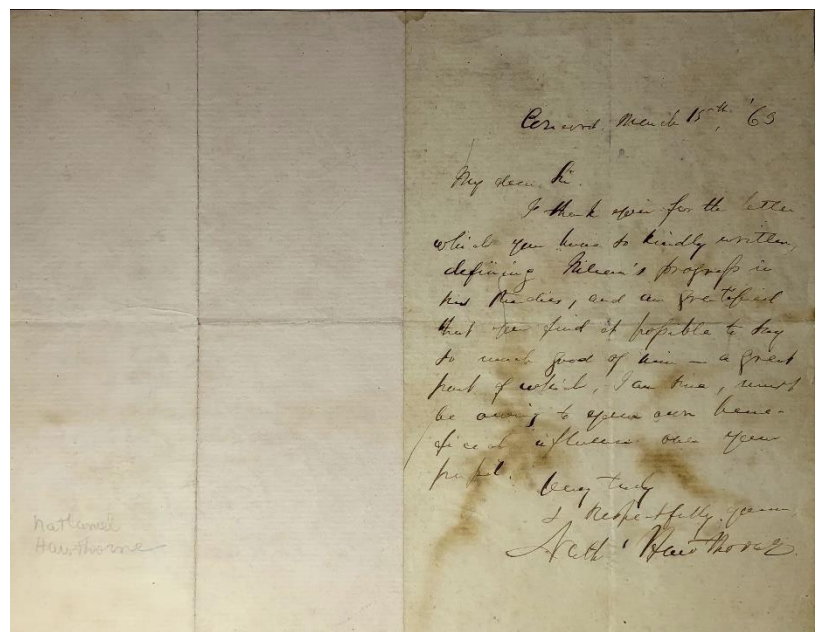 Nathaniel
Hawthorne
Concord, March 15th, '63
My dear Sir.
I thank you for the letter
which you have so kindly written,
defining Julian's progress in
his studies, and am gratified
that you find it possible to say
so much good of him — a great
part of which, I am sure, must
be owing to your own bene-
ficial influence over your
pupil.
Very truly
& Respectfully yours
Nathl Hawthorne